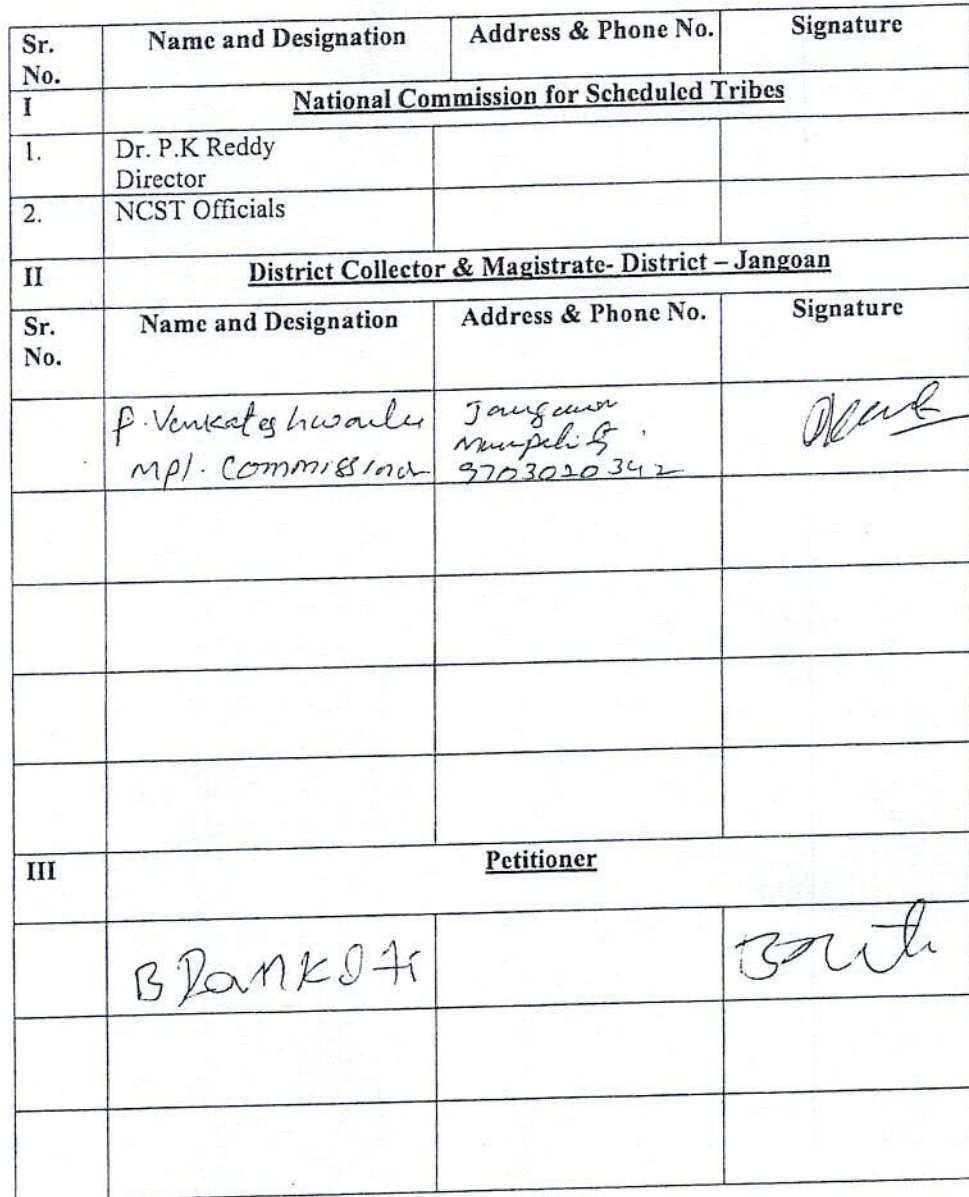 Sr. No. Name and Designation Address & Phone No. Signature
I National Commission for Scheduled Tribes
1. Dr. P.K Reddy
Director
2. NCST Officials
II District Collector & Magistrate- District – Jangoan
Sr. No. Name and Designation Address & Phone No. Signature
P. Venkateshwarlu
Mpl. Commissioner
9703020342
III Petitioner
B